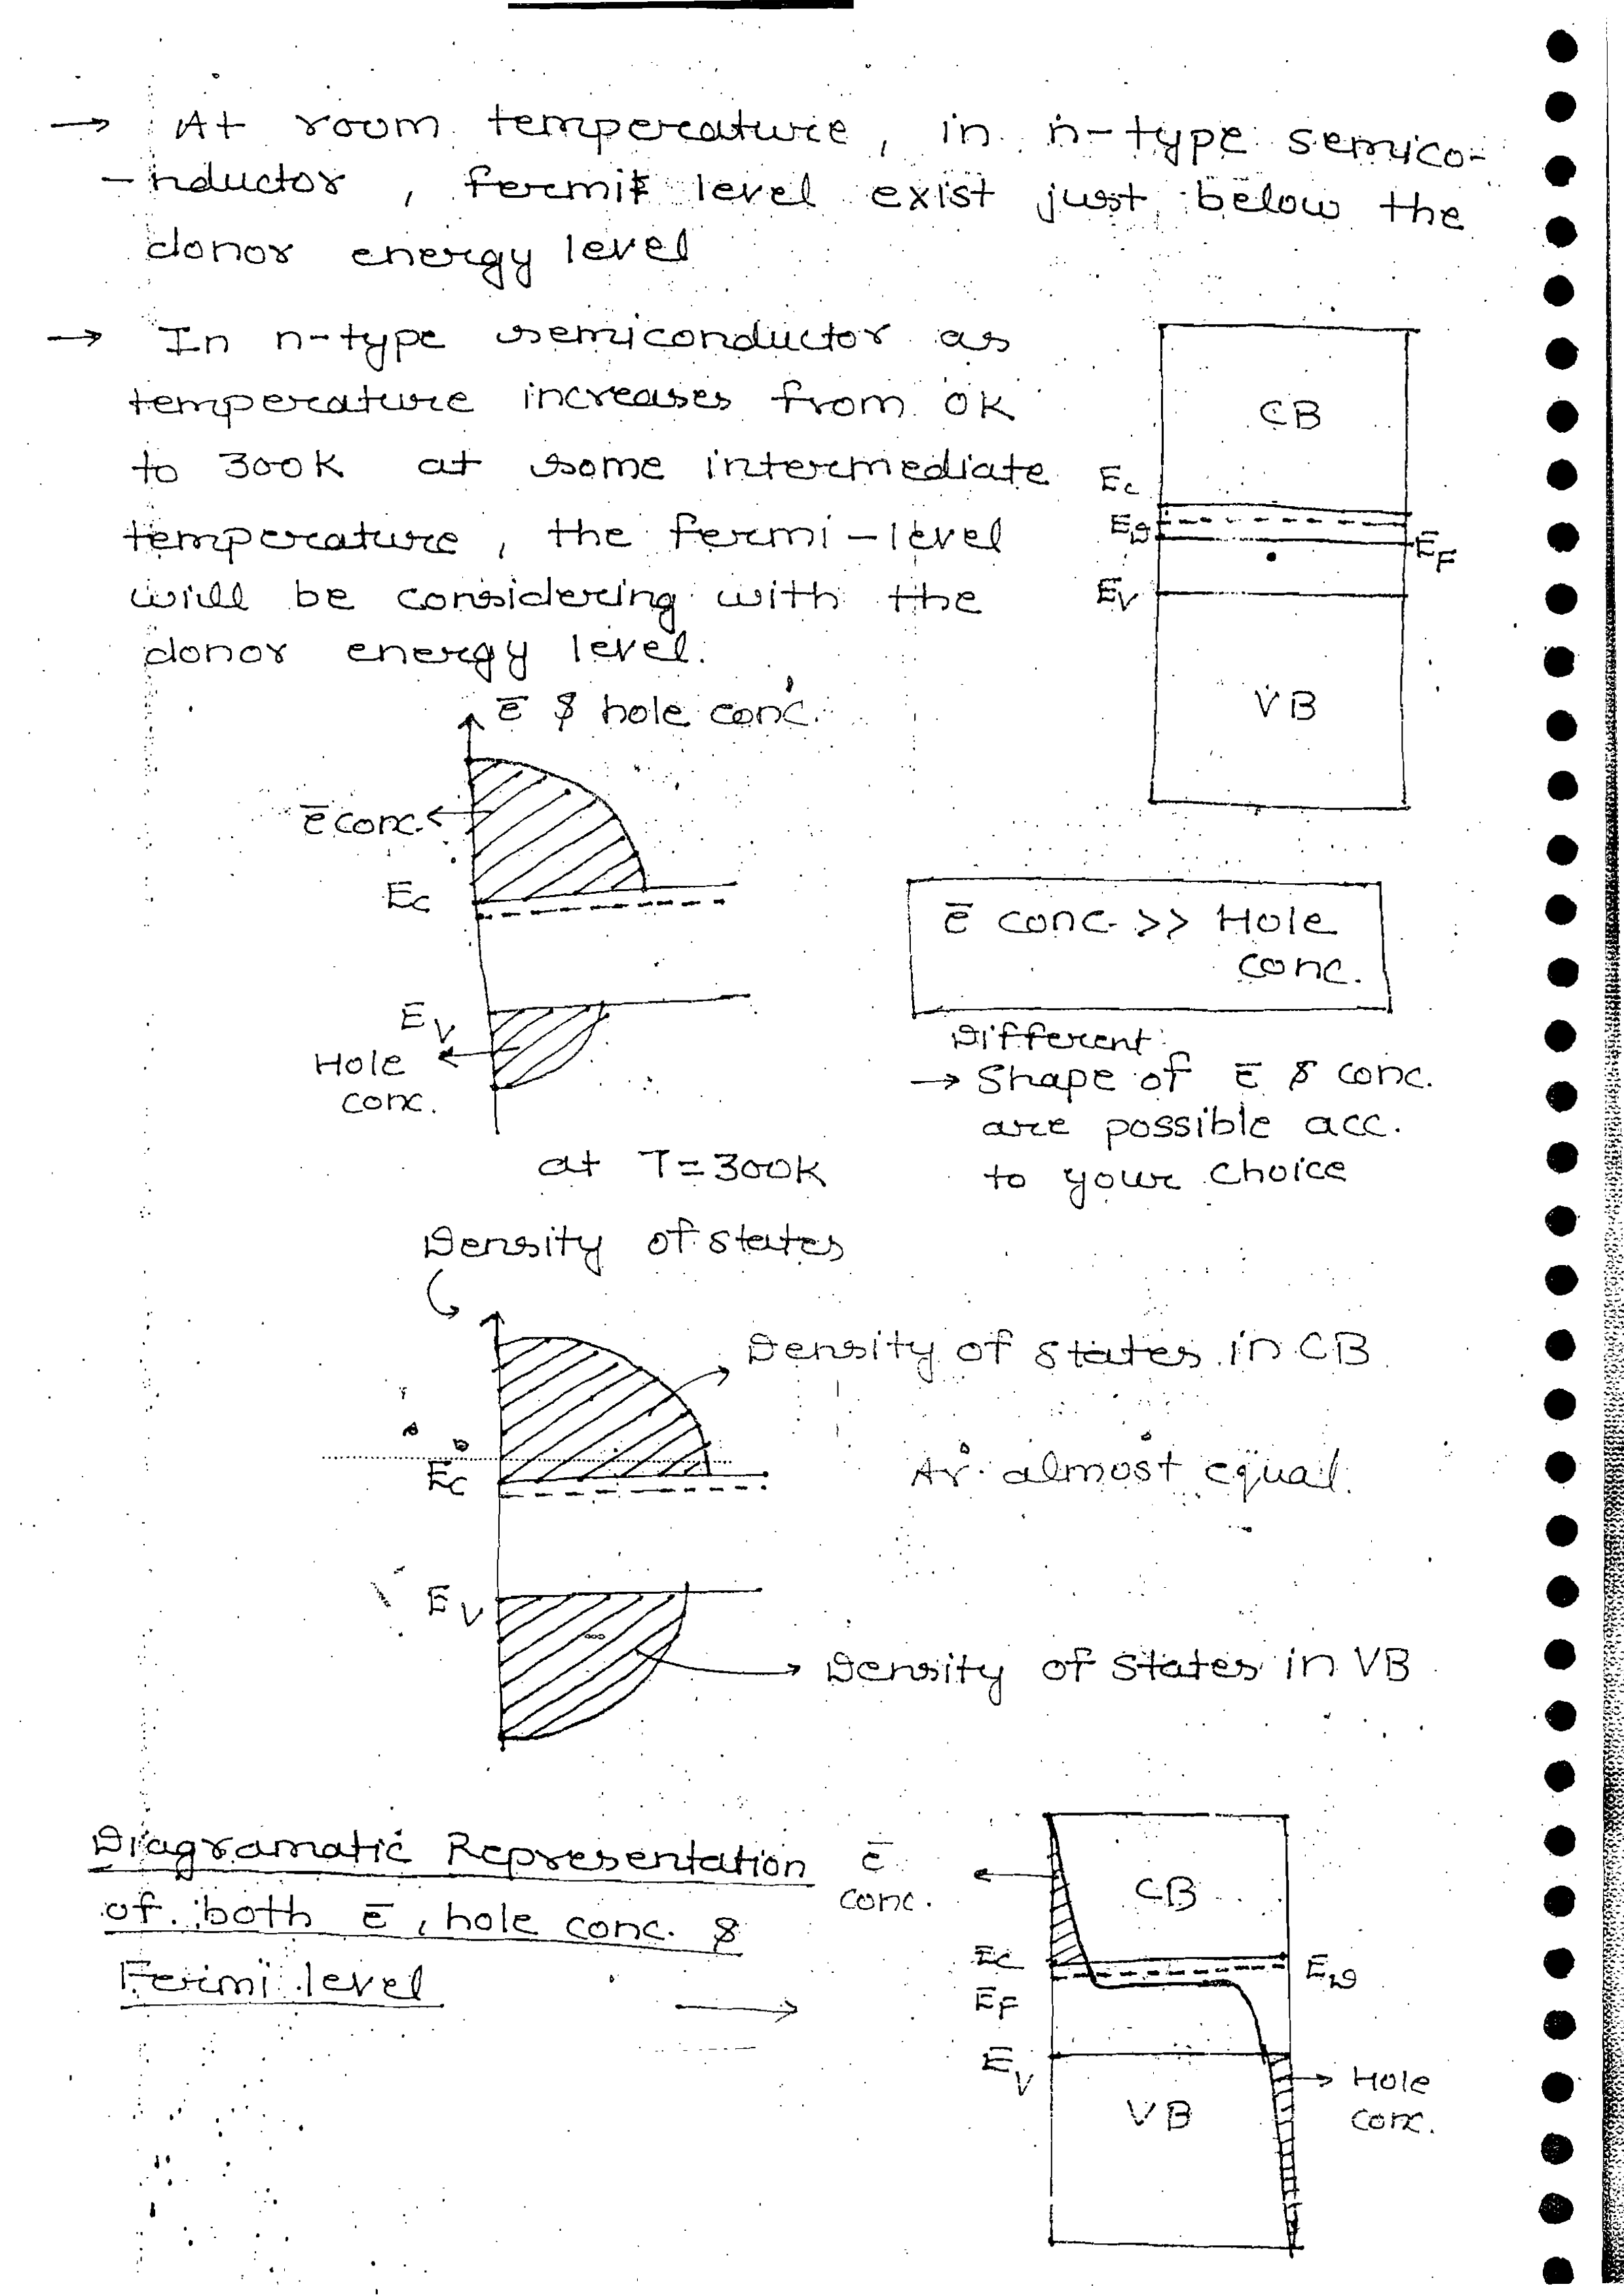 → At room temperature, in n-type semico-
-nductor, fermi level exist just below the
donor energy level
→ In n-type semiconductor as
temperature increases from 0K
to 300K at some intermediate
temperature, the fermi-level
will be considering with the
donor energy level.
CB
Ec
ED
EF
EV
VB
ē & hole conc.
ē conc.
Ec
EV
Hole
conc.
at T=300K
ē conc. >> Hole
conc.
Different
→ Shape of ē & conc.
are possible acc.
to your choice
Density of states
Density of states in CB
Ec
almost equal
EV
Density of States in VB
Diagramatic Representation
of both ē, hole conc. &
Fermi level →
ē
conc.
CB
Ec
ED
EF
EV
VB
Hole
conc.